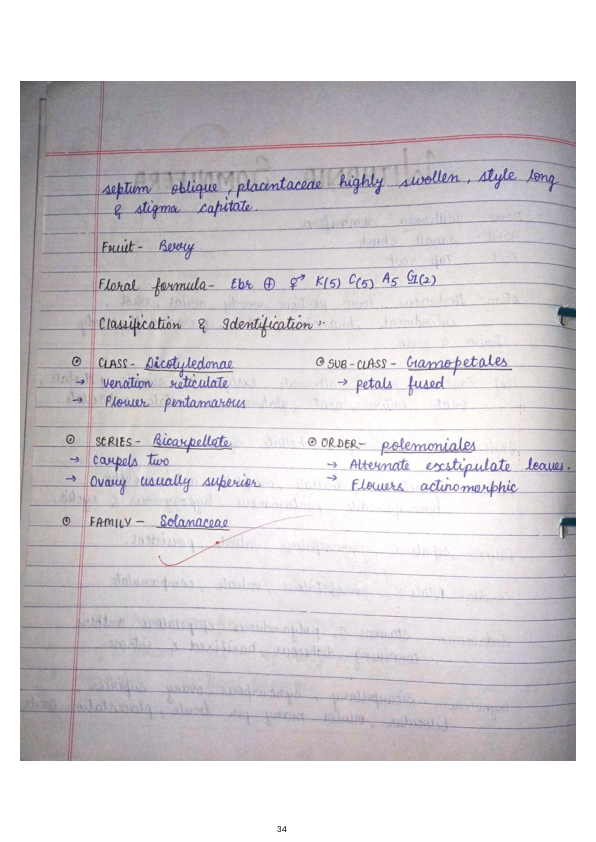 septum oblique, placentaceae highly swollen, style long
& stigma capitate.
Fruit- Berry
Floral formula- Ebr ⊕ ⚥ K(5) C(5) A5 G(2)
Classification & Identification :-
⊙ CLASS- Dicotyledonae
→ Venation reticulate
→ Flower pentamarous
⊙ SUB-CLASS- Gamopetales
→ petals fused
⊙ SERIES- Bicarpellate
→ Carpels two
→ Ovary usually superior
⊙ ORDER- polemoniales
→ Alternate exstipulate leaves.
→ Flowers actinomorphic
⊙ FAMILY- Solanaceae
34